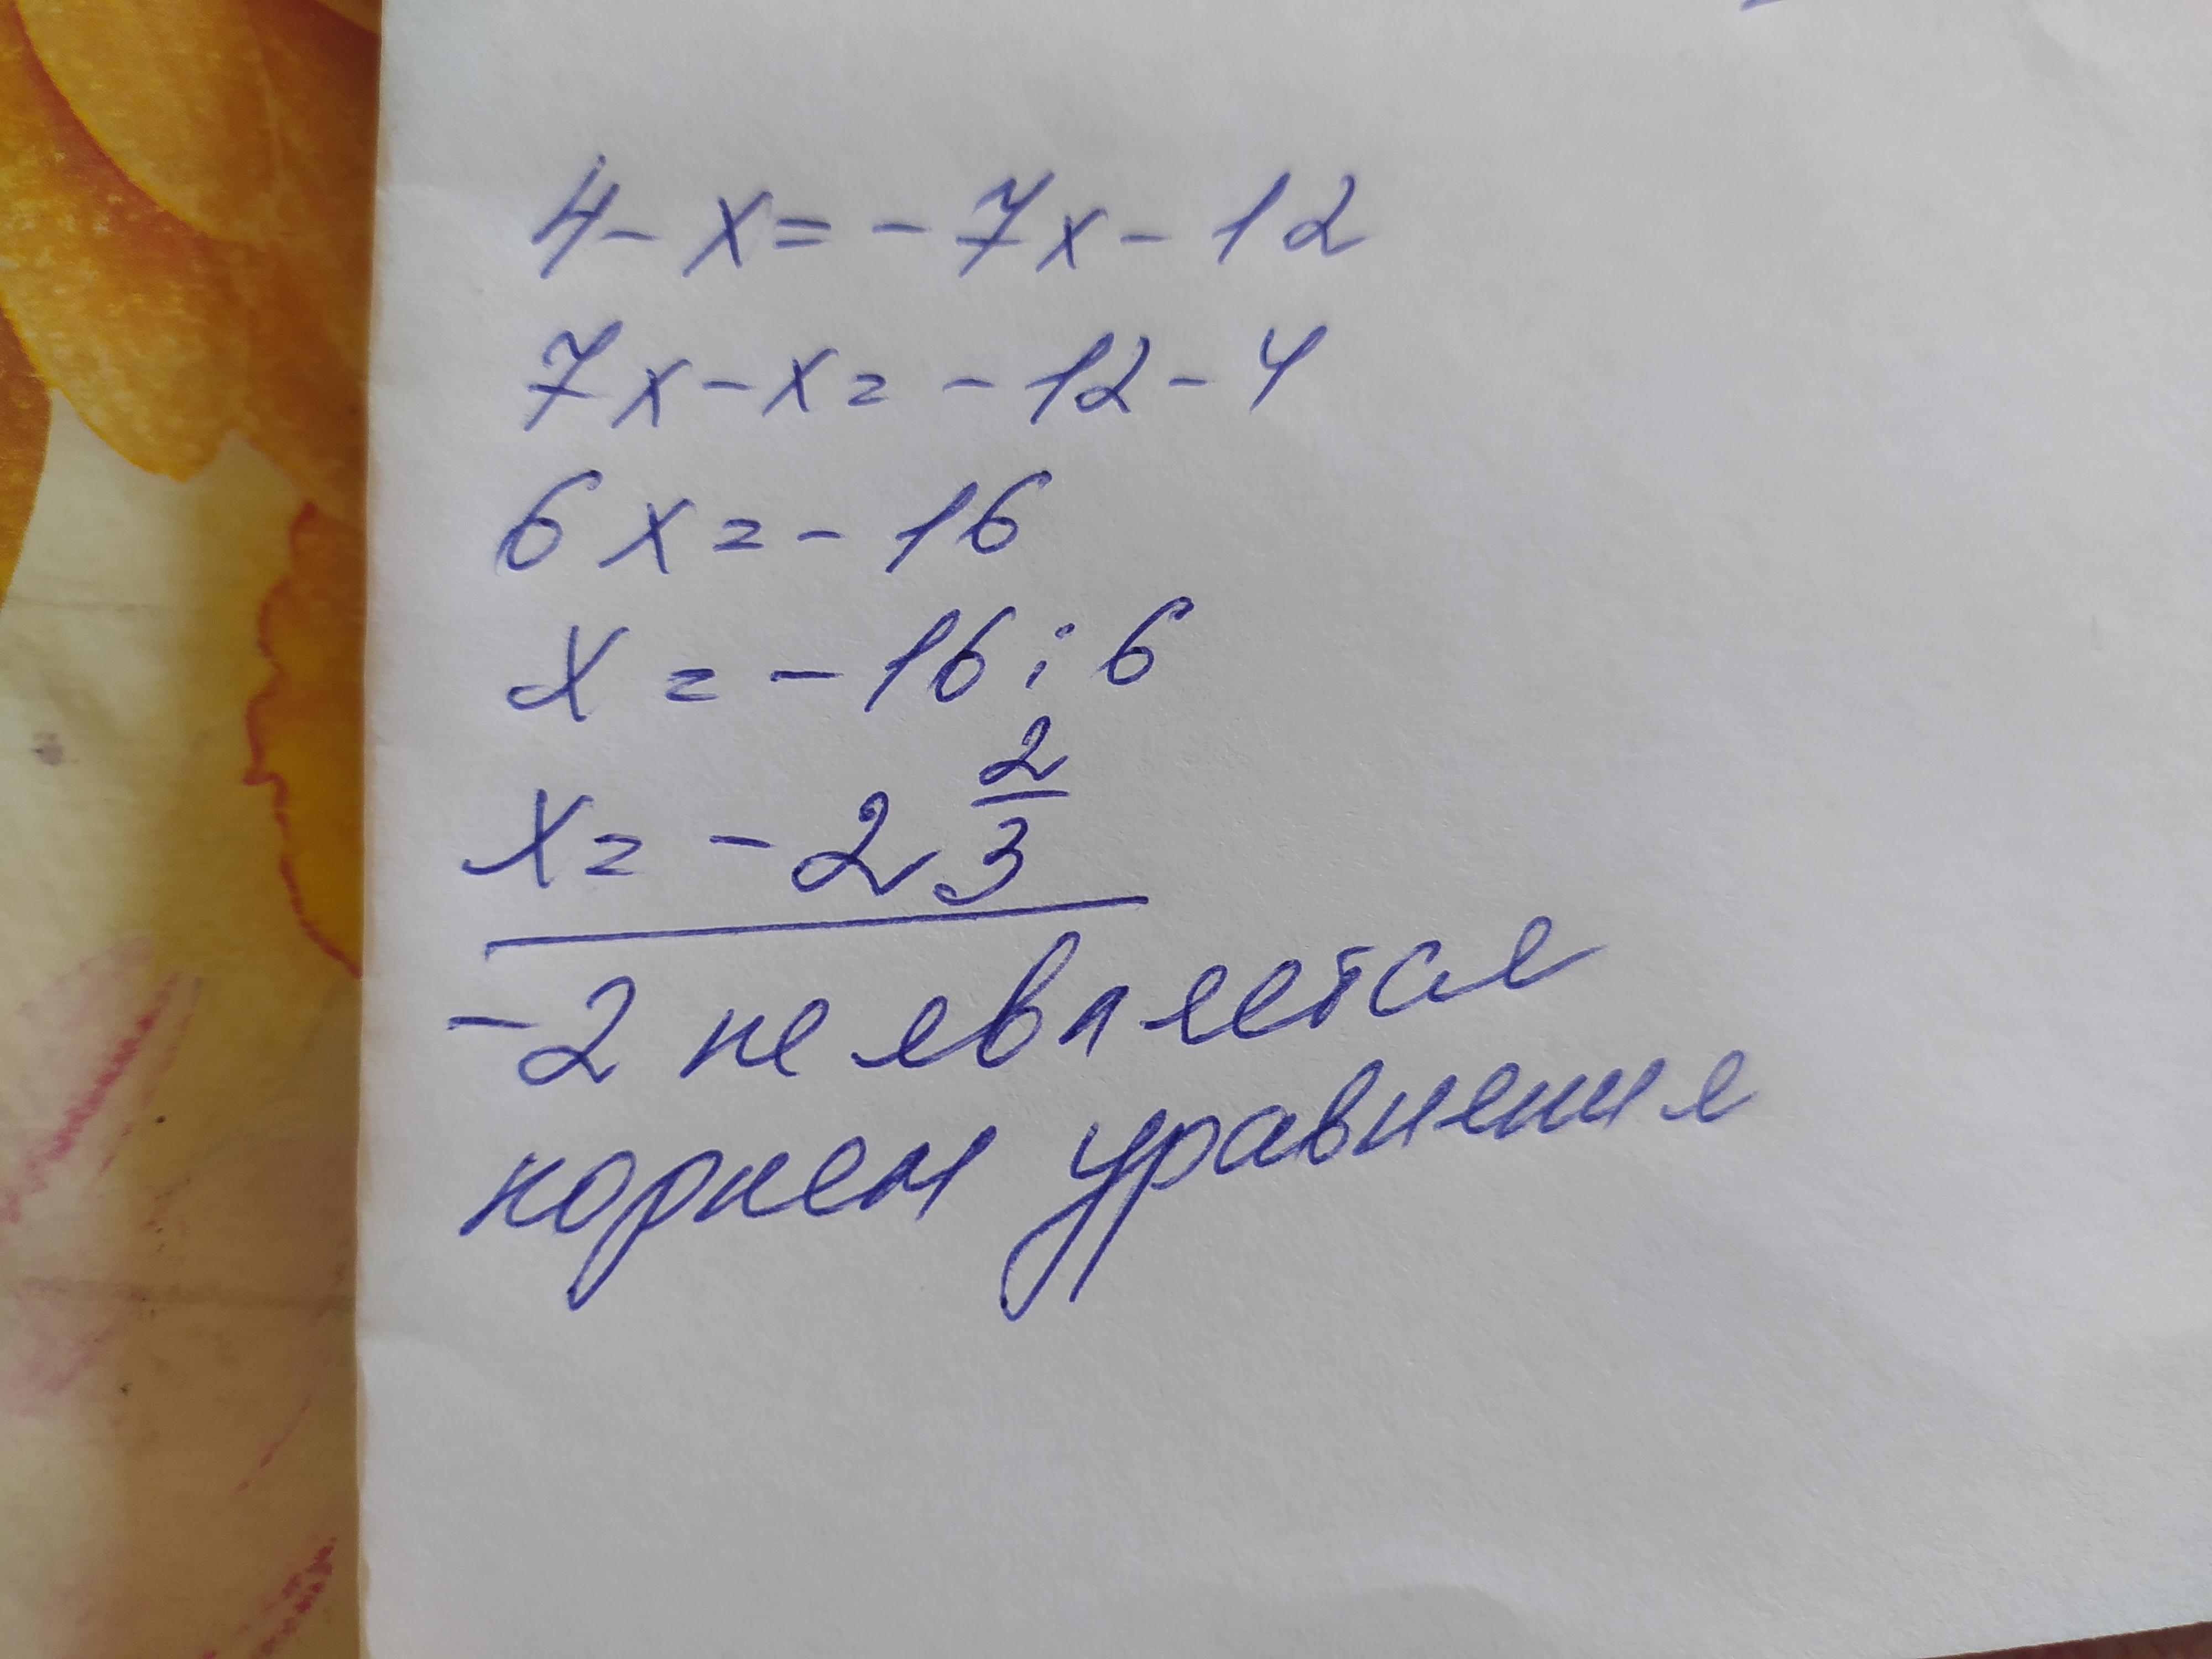 4 - x = - 7x - 12
7x - x = - 12 - 4
6x = - 16
x = - 16 : 6
x = - 2 2/3
- 2 не является
корнем уравнения